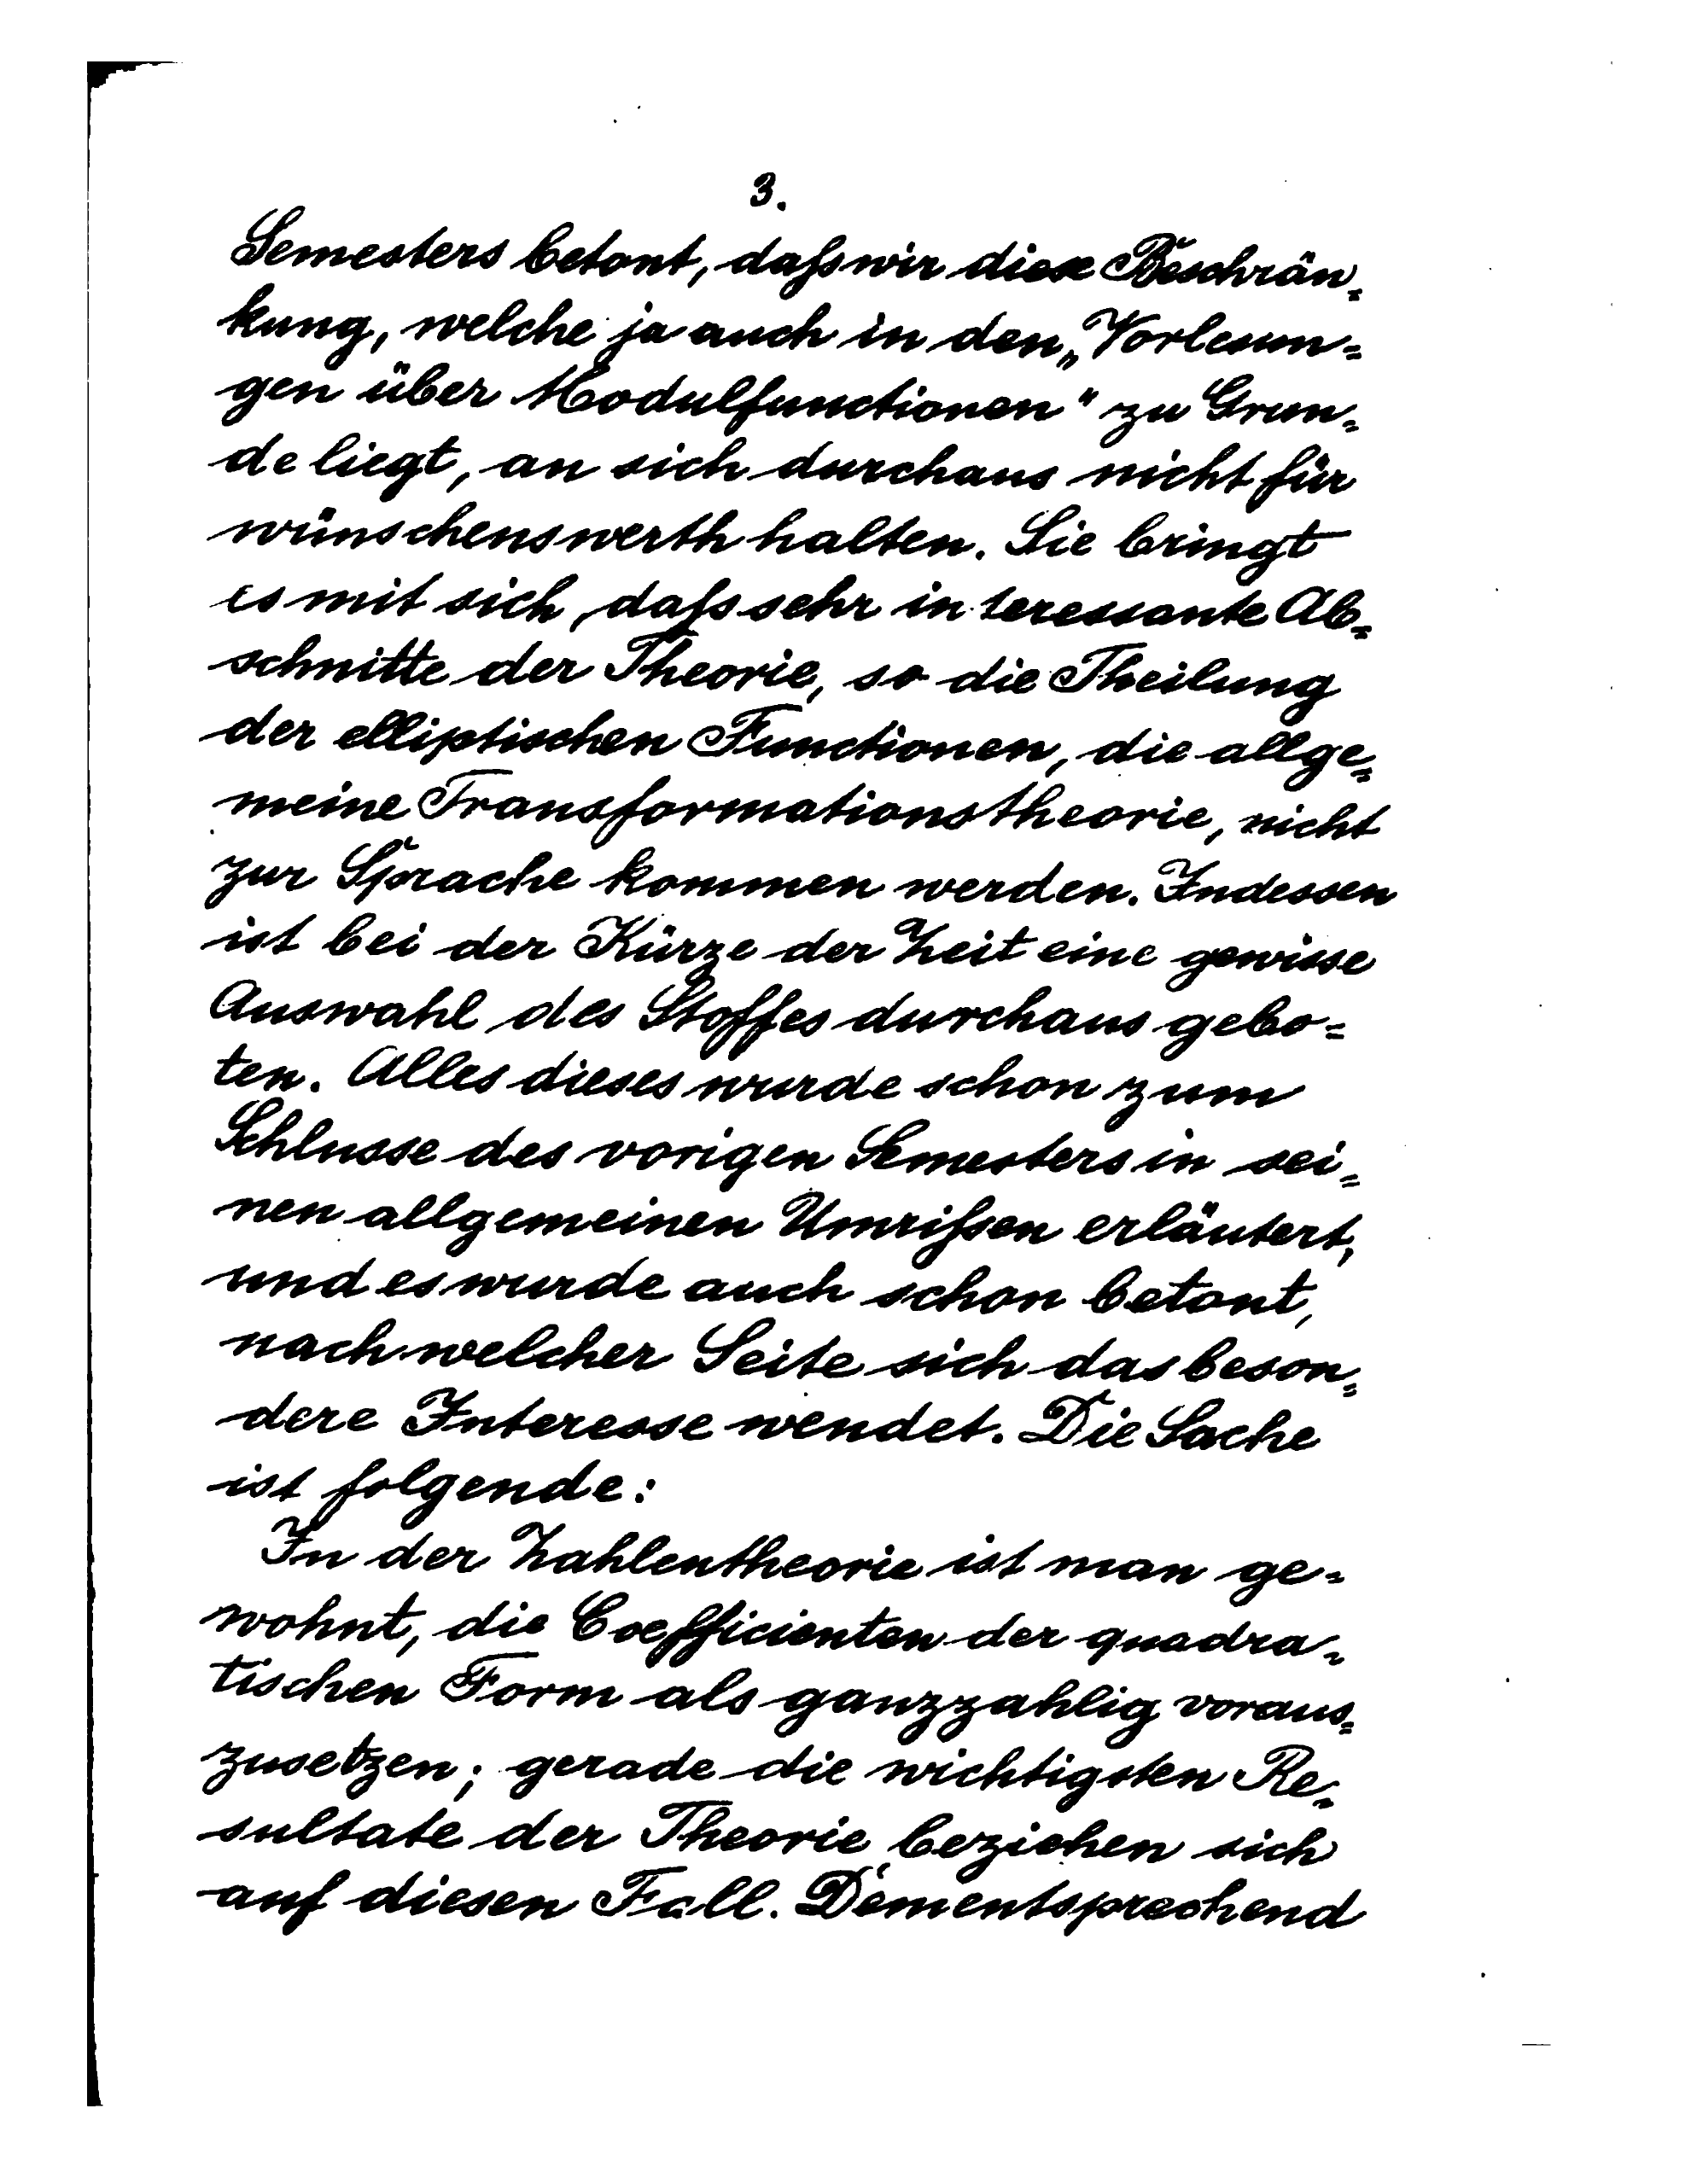 3.
Semesters betont, daß wir diese Beschrän=
kung, welche ja auch in den „Vorlesun=
gen über Modulfunctionen" zu Grun=
de liegt, an sich durchaus nicht für
wünschenswerth halten. Sie bringt
es mit sich, daß sehr interessante Ab=
schnitte der Theorie, so die Theilung
der elliptischen Functionen, die allge=
meine Transformationstheorie, nicht
zur Sprache kommen werden. Indessen
ist bei der Kürze der Zeit eine gewisse
Auswahl des Stoffes durchaus gebo=
ten. Alles dieses wurde schon zum
Schlusse des vorigen Semesters in sei=
nen allgemeinen Umrißen erläutert,
und es wurde auch schon betont,
nach welcher Seite sich das beson=
dere Interesse wendet. Die Sache
ist folgende:
In der Zahlentheorie ist man ge=
wohnt, die Coefficienten der quadra=
tischen Form als ganzzahlig voraus=
zusetzen; gerade die wichtigsten Re=
sultate der Theorie beziehen sich
auf diesen Fall. Dementsprechend